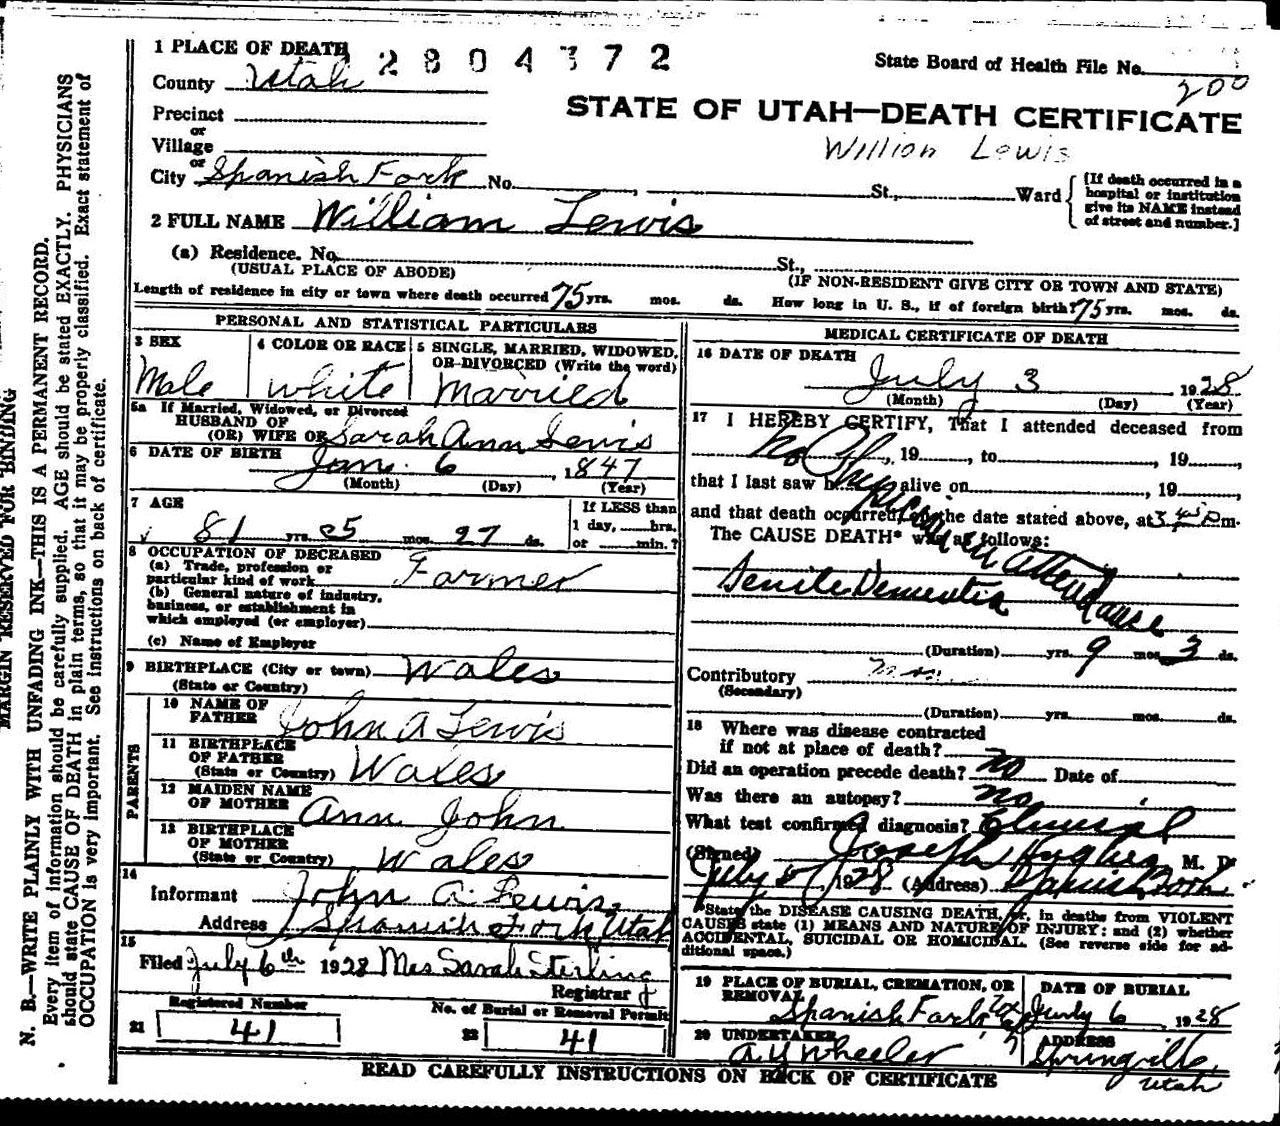 1 PLACE OF DEATH 2804372
State Board of Health File No.
200
County Utah
STATE OF UTAH—DEATH CERTIFICATE
Precinct
or
Village
Willion Lewis
or
City Spanish Fork No. St., Ward
[If death occurred in a
hospital or institution
give its NAME instead
of street and number.]
2 FULL NAME William Lewis
(a) Residence. No. St.,
(USUAL PLACE OF ABODE) (IF NON-RESIDENT GIVE CITY OR TOWN AND STATE)
Length of residence in city or town where death occurred 75 yrs. mos. ds. How long in U. S., if of foreign birth? 75 yrs. mos. ds.
PERSONAL AND STATISTICAL PARTICULARS
3 SEX 4 COLOR OR RACE 5 SINGLE, MARRIED, WIDOWED,
OR DIVORCED (Write the word)
Male white Married
5a If Married, Widowed, or Divorced
HUSBAND OF
(OR) WIFE OF Sarah Ann Lewis
6 DATE OF BIRTH Jan. 6, 1847
(Month) (Day) (Year)
7 AGE If LESS than
1 day, hrs.
81 yrs. 5 mos. 27 ds. or min.?
8 OCCUPATION OF DECEASED
(a) Trade, profession or
particular kind of work Farmer
(b) General nature of industry,
business, or establishment in
which employed (or employer)
(c) Name of Employer
9 BIRTHPLACE (City or town) Wales
(State or Country)
PARENTS
10 NAME OF
FATHER John A Lewis
11 BIRTHPLACE
OF FATHER
(State or Country) Wales
12 MAIDEN NAME
OF MOTHER Ann John
13 BIRTHPLACE
OF MOTHER
(State or Country) Wales
14
Informant John A. Lewis
Address Spanish Fork Utah
15
Filed July 6th 1928 Mrs Sarah Sterling
Registrar
Registered Number No. of Burial or Removal Permit
21 41 22 41
MEDICAL CERTIFICATE OF DEATH
16 DATE OF DEATH
July 3 1928
(Month) (Day) (Year)
17 I HEREBY CERTIFY, That I attended deceased from
, 19 , to , 19
that I last saw h alive on , 19
and that death occurred on the date stated above, at 3 45 P m.
The CAUSE DEATH* was as follows:
No Physician in attendance
Senile Dementia
(Duration) yrs. 9 mos. 3 ds.
Contributory
(Secondary)
(Duration) yrs. mos. ds.
18 Where was disease contracted
if not at place of death? no
Did an operation precede death? no Date of
Was there an autopsy? no
What test confirmed diagnosis? Clinical
(Signed) Joseph Hughes M. D.
July 5 1928 (Address) Spanish Fork
*State the DISEASE CAUSING DEATH, or, in deaths from VIOLENT
CAUSES state (1) MEANS AND NATURE OF INJURY: and (2) whether
ACCIDENTAL, SUICIDAL OR HOMICIDAL. (See reverse side for ad-
ditional space.)
19 PLACE OF BURIAL, CREMATION, OR
REMOVAL DATE OF BURIAL
Spanish Fork July 6 1928
20 UNDERTAKER ADDRESS
A Y Wheeler Springville,
Utah
READ CAREFULLY INSTRUCTIONS ON BACK OF CERTIFICATE
MARGIN RESERVED FOR BINDING
N. B.—WRITE PLAINLY WITH UNFADING INK—THIS IS A PERMANENT RECORD.
Every item of information should be carefully supplied. AGE should be stated EXACTLY. PHYSICIANS
should state CAUSE OF DEATH in plain terms, so that it may be properly classified. Exact statement of
OCCUPATION is very important. See instructions on back of certificate.